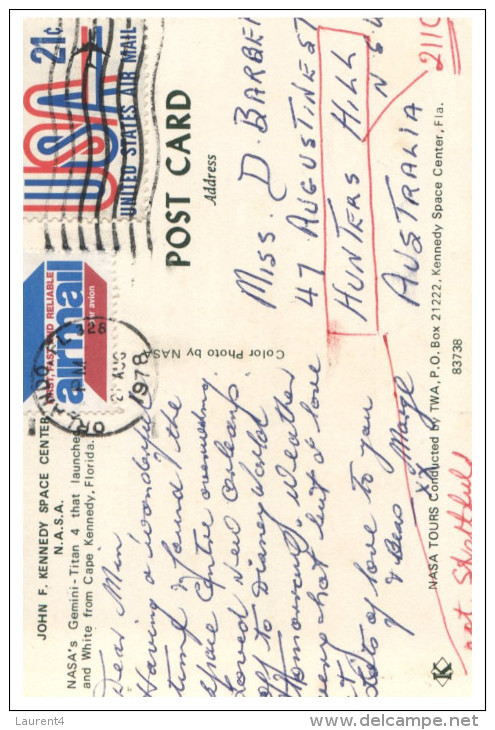 JOHN F. KENNEDY SPACE CENTER
N.A.S.A.
NASA's Gemini-Titan 4 that launched
and White from Cape Kennedy, Florida.
Dear Mim
Having a wonderful
time & found the
space Centre overwhelming.
Loved New Orleans.
Off to Disney World
Tomorrow, weather
very hot but I love
it,
Lots of love to you
& Bess x Marge
FAST, FAST AND RELIABLE
airmail
par avion
ORLANDO FL 328
PM
21 AUG
1978
USA 21c
UNITED STATES AIR MAIL
POST CARD
Address
Color Photo by NASA
MISS. D. BARBER
47 AUGUSTINE ST
HUNTERS HILL
N S W
2110
AUSTRALIA
not Strathfield
NASA TOURS Conducted by TWA, P.O. Box 21222, Kennedy Space Center, Fla.
83738
K
Laurent4
www.delcampe.net